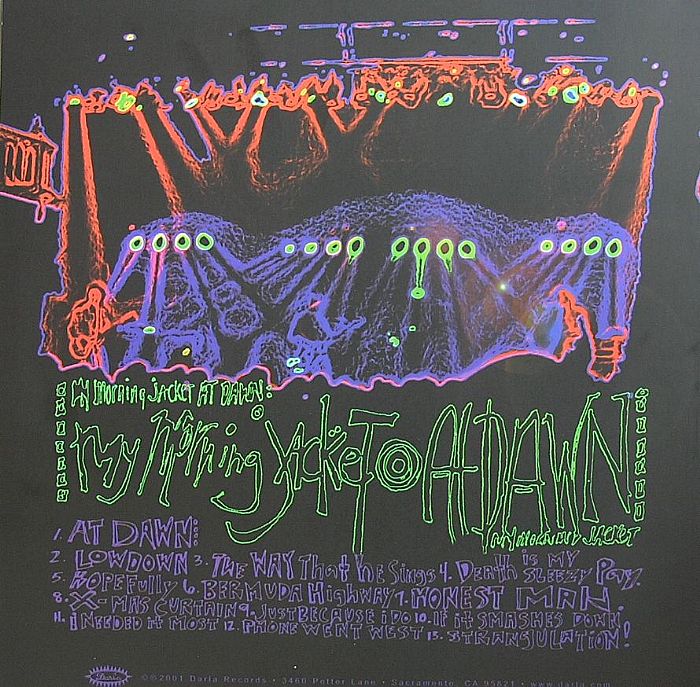 My Morning Jacket AT DAWN:
My Morning Jacket @ At DAWN
My Morning JACKET
1. AT DAWN:
2. LOWDOWN 3. THE WAY That He Sings 4. Death is MY
SLEEZY Pay.
5. HOPEFully 6. BERMUDA HIGHWAY 7. HONEST MAN.
8. X-MAS CURTAIN 9. JUST BECAUSE i DO 10. IF it SMASHES DOWN.
11. I NEEDED iT MOST 12. PHONE WENT WEST 13. STRANGULATION!
Darla ©℗2001 Darla Records • 3460 Potter Lane • Sacramento, CA 95821 • www.darla.com